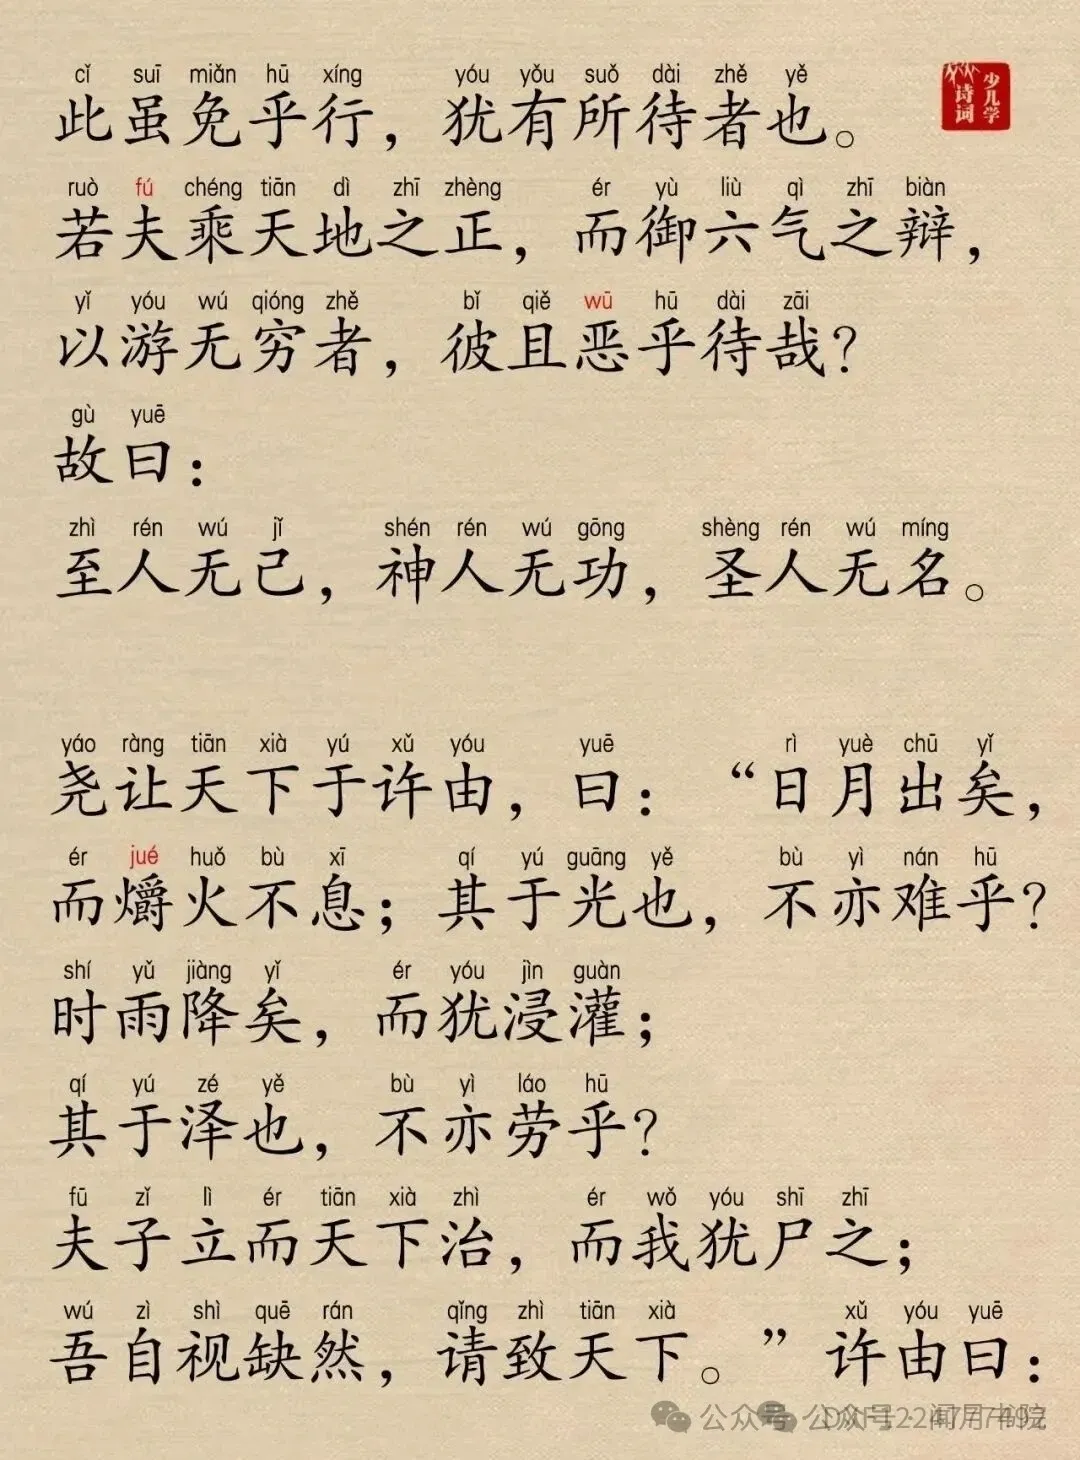 cǐ suī miǎn hū xíng yóu yǒu suǒ dài zhě yě
此虽免乎行，犹有所待者也。
少儿学
诗词
ruò fú chéng tiān dì zhī zhèng ér yù liù qì zhī biàn
若夫乘天地之正，而御六气之辩，
yǐ yóu wú qióng zhě bǐ qiě wū hū dài zāi
以游无穷者，彼且恶乎待哉？
gù yuē
故曰：
zhì rén wú jǐ shén rén wú gōng shèng rén wú míng
至人无己，神人无功，圣人无名。
yáo ràng tiān xià yú xǔ yóu yuē rì yuè chū yǐ
尧让天下于许由，曰：“日月出矣，
ér jué huǒ bù xī qí yú guāng yě bù yì nán hū
而爝火不息；其于光也，不亦难乎？
shí yǔ jiàng yǐ ér yóu jìn guàn
时雨降矣，而犹浸灌；
qí yú zé yě bù yì láo hū
其于泽也，不亦劳乎？
fū zǐ lì ér tiān xià zhì ér wǒ yóu shī zhī
夫子立而天下治，而我犹尸之；
wú zì shì quē rán qǐng zhì tiān xià xǔ yóu yuē
吾自视缺然，请致天下。”许由曰：
公众号 公众号